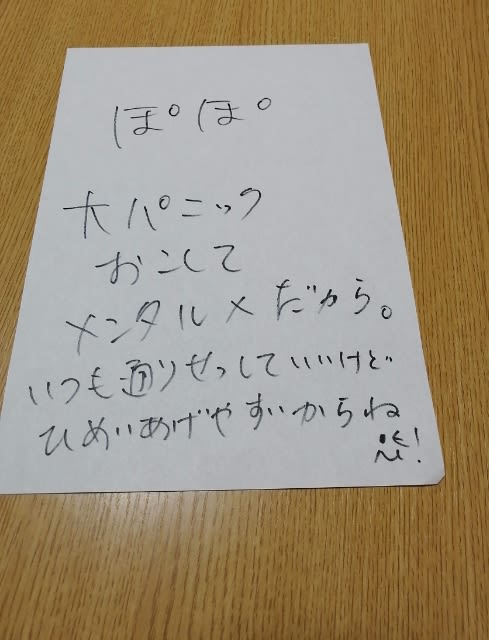 ぽぽ
大パニック
おこして
メンタル×だから。
いつも通りせっしていいけど
ひめいあげやすいからね